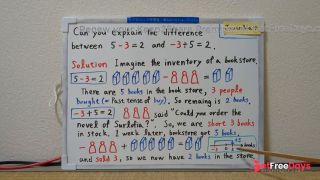 Can you explain the difference
between 5-3=2 and -3+5=2.
Solution Imagine the inventory of a bookstore.
5-3=2 - =
There are 5 books in the book store, 3 people
bought (= Past tense of buy), So remaing is 2 books.
-3+5=2 said "Could you order the
novel of ?". So, we are short 3 books
in stock. 1 week later, bookstore got 5 books,
- + =
and sold 3, so we now have 2 books in the store.
FreeDays